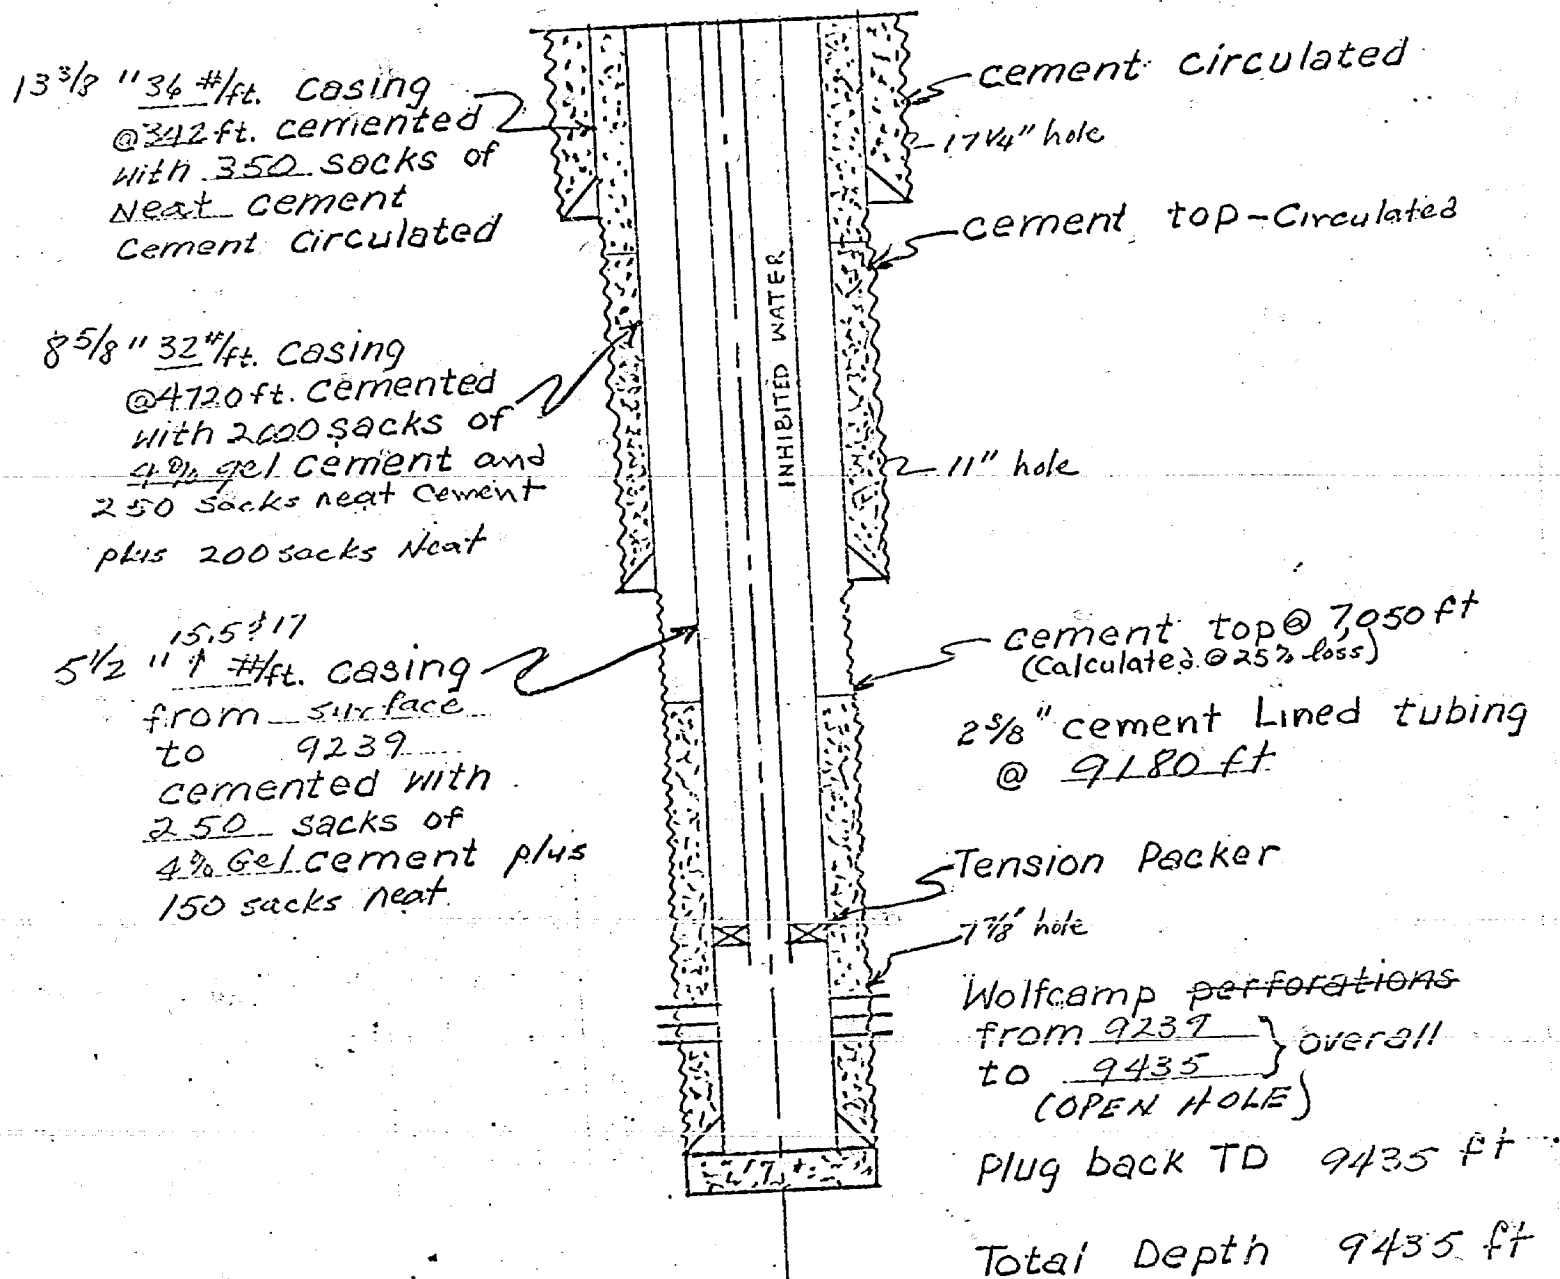 13 3/8 " 36 #/ft. casing
@342 ft. cemented
with 350 sacks of
Neat cement
Cement Circulated
8 5/8 " 32 #/ft. casing
@4720 ft. cemented
with 2000 sacks of
4% gel cement and
250 sacks neat cement
plus 200 sacks Neat
15.5 & 17
5 1/2 " ↑ #/ft. casing
from surface
to 9239
cemented with
250 sacks of
4% Gel cement plus
150 sacks neat.
INHIBITED WATER
cement circulated
17 1/4" hole
cement top-Circulated
11" hole
cement top @ 7,050 ft
(Calculated @ 25% loss)
2 3/8 " cement Lined tubing
@ 9180 ft
Tension Packer
7 7/8" hole
Wolfcamp perforations
from 9239 } overall
to 9435
(OPEN HOLE)
Plug back TD 9435 ft
Total Depth 9435 ft